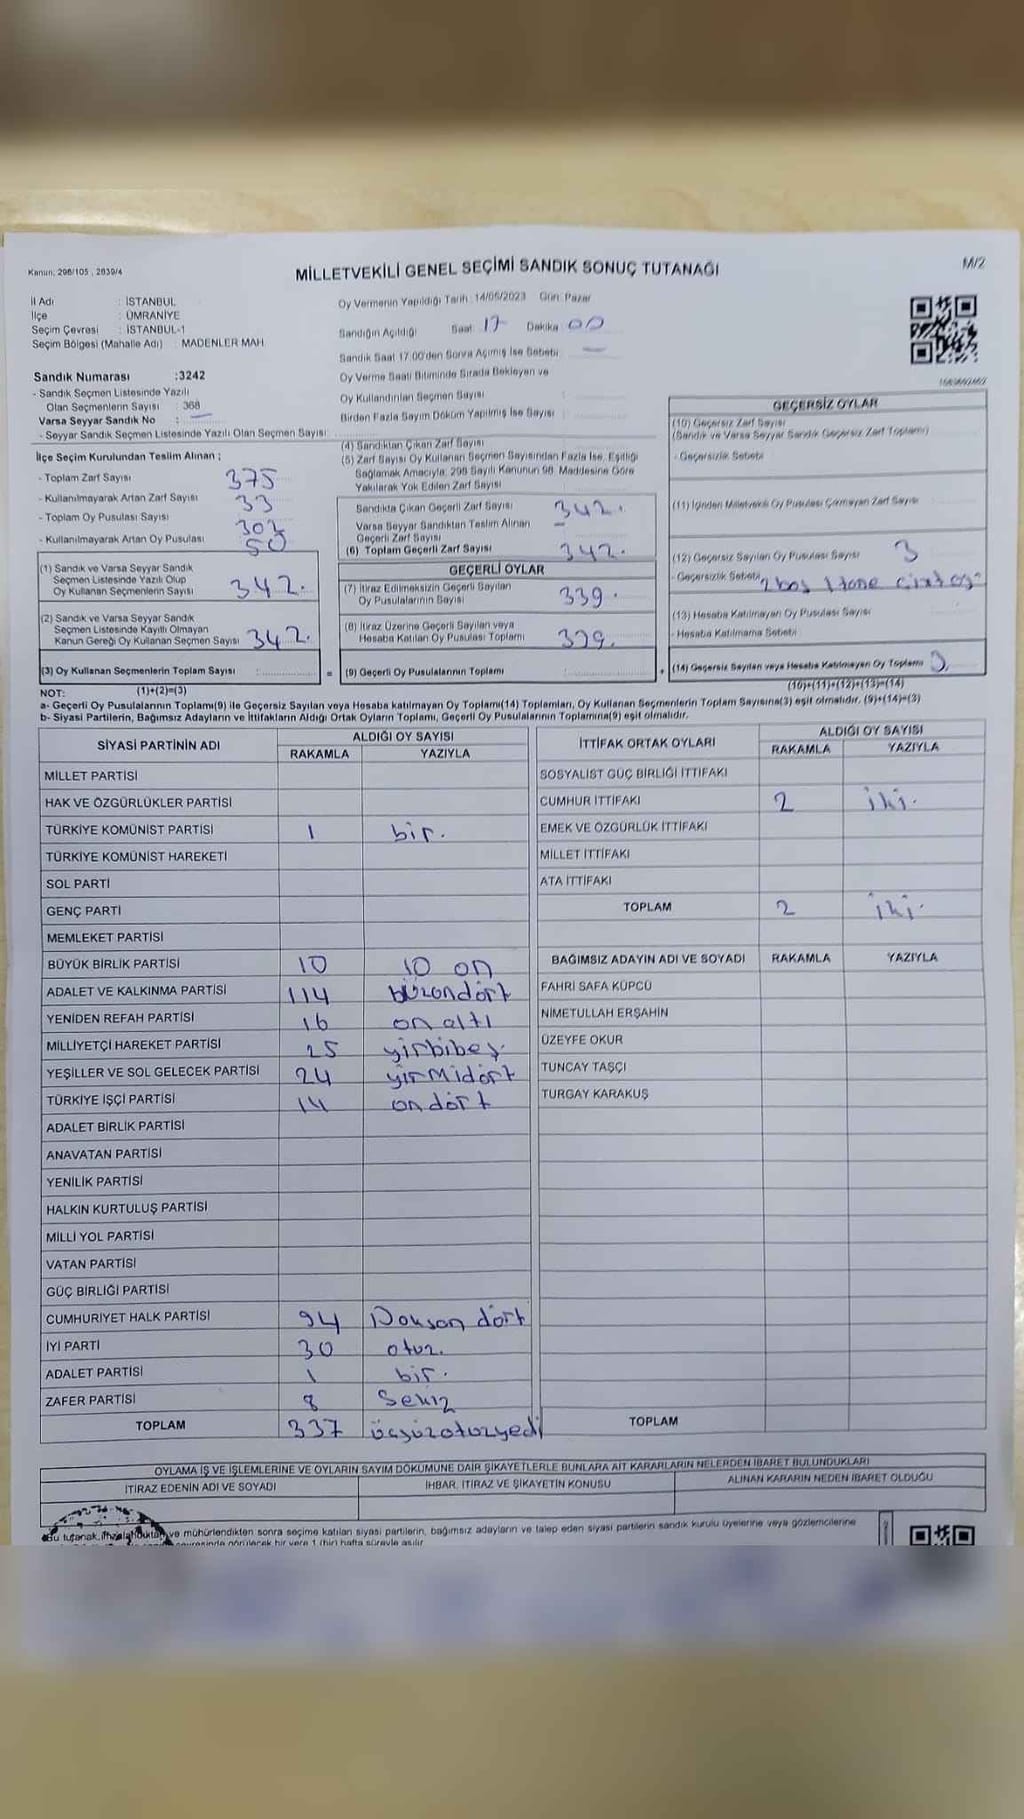 Kanun: 298/105 , 2839/4
MİLLETVEKİLİ GENEL SEÇİMİ SANDIK SONUÇ TUTANAĞI
M/2
İl Adı : İSTANBUL
İlçe : ÜMRANİYE
Seçim Çevresi : İSTANBUL-1
Seçim Bölgesi (Mahalle Adı) : MADENLER MAH.
Oy Vermenin Yapıldığı Tarih : 14/05/2023 Gün: Pazar
Sandığın Açıldığı Saat : 17 Dakika : 00
Sandık Saat 17.00'den Sonra Açılmış İse Sebebi : —
Oy Verme Saati Bitiminde Sırada Bekleyen ve
Oy Kullandırılan Seçmen Sayısı
Birden Fazla Sayım Döküm Yapılmış İse Sayısı :
Sandık Numarası :3242
- Sandık Seçmen Listesinde Yazılı
Olan Seçmenlerin Sayısı : 368
Varsa Seyyar Sandık No : —
- Seyyar Sandık Seçmen Listesinde Yazılı Olan Seçmen Sayısı:
İlçe Seçim Kurulundan Teslim Alınan ;
- Toplam Zarf Sayısı 375
- Kullanılmayarak Artan Zarf Sayısı 33
- Toplam Oy Pusulası Sayısı
- Kullanılmayarak Artan Oy Pusulası 50
(1) Sandık ve Varsa Seyyar Sandık
Seçmen Listesinde Yazılı Olup
Oy Kullanan Seçmenlerin Sayısı 342.
(2) Sandık ve Varsa Seyyar Sandık
Seçmen Listesinde Kayıtlı Olmayan
Kanun Gereği Oy Kullanan Seçmen Sayısı 342.
(3) Oy Kullanan Seçmenlerin Toplam Sayısı :
(1)+(2)=(3)
(4) Sandıktan Çıkan Zarf Sayısı
(5) Zarf Sayısı Oy Kullanan Seçmen Sayısından Fazla İse, Eşitliği
Sağlamak Amacıyla; 298 Sayılı Kanunun 98. Maddesine Göre
Yakılarak Yok Edilen Zarf Sayısı
Sandıkta Çıkan Geçerli Zarf Sayısı 342.
Varsa Seyyar Sandıktan Teslim Alınan
Geçerli Zarf Sayısı —
(6) Toplam Geçerli Zarf Sayısı 342.
GEÇERLİ OYLAR
(7) İtiraz Edilmeksizin Geçerli Sayılan
Oy Pusulalarının Sayısı 339.
(8) İtiraz Üzerine Geçerli Sayılan veya
Hesaba Katılan Oy Pusulası Toplamı 339.
(9) Geçerli Oy Pusulalarının Toplamı
GEÇERSİZ OYLAR
(10) Geçersiz Zarf Sayısı
(Sandık ve Varsa Seyyar Sandık Geçersiz Zarf Toplamı)
- Geçersizlik Sebebi
(11) İçinden Milletvekili Oy Pusulası Çıkmayan Zarf Sayısı
(12) Geçersiz Sayılan Oy Pusulası Sayısı 3
- Geçersizlik Sebebi 2 boş 1 tane
(13) Hesaba Katılmayan Oy Pusulası Sayısı
- Hesaba Katılmama Sebebi
(14) Geçersiz Sayılan veya Hesaba Katılmayan Oy Toplamı 3
(10)+(11)+(12)+(13)=(14)
NOT:
a- Geçerli Oy Pusulalarının Toplamı(9) ile Geçersiz Sayılan veya Hesaba katılmayan Oy Toplamı(14) Toplamları, Oy Kullanan Seçmenlerin Toplam Sayısına(3) eşit olmalıdır. (9)+(14)=(3)
b- Siyasi Partilerin, Bağımsız Adayların ve İttifakların Aldığı Ortak Oyların Toplamı, Geçerli Oy Pusulalarının Toplamına(9) eşit olmalıdır.
SİYASİ PARTİNİN ADI ALDIĞI OY SAYISI
RAKAMLA YAZIYLA
MİLLET PARTİSİ
HAK VE ÖZGÜRLÜKLER PARTİSİ
TÜRKİYE KOMÜNİST PARTİSİ 1 bir.
TÜRKİYE KOMÜNİST HAREKETİ
SOL PARTİ
GENÇ PARTİ
MEMLEKET PARTİSİ
BÜYÜK BİRLİK PARTİSİ 10 10 on
ADALET VE KALKINMA PARTİSİ 114 yüzondört
YENİDEN REFAH PARTİSİ 16 on altı
MİLLİYETÇİ HAREKET PARTİSİ 25 yirbibeş
YEŞİLLER VE SOL GELECEK PARTİSİ 24 yirmidört
TÜRKİYE İŞÇİ PARTİSİ 14 ondört
ADALET BİRLİK PARTİSİ
ANAVATAN PARTİSİ
YENİLİK PARTİSİ
HALKIN KURTULUŞ PARTİSİ
MİLLİ YOL PARTİSİ
VATAN PARTİSİ
GÜÇ BİRLİĞİ PARTİSİ
CUMHURİYET HALK PARTİSİ 94 Doksan dört
İYİ PARTİ 30 otuz.
ADALET PARTİSİ 1 bir.
ZAFER PARTİSİ 8 Sekiz
TOPLAM 337 üçyüzotuzyedi
İTTİFAK ORTAK OYLARI ALDIĞI OY SAYISI
RAKAMLA YAZIYLA
SOSYALİST GÜÇ BİRLİĞİ İTTİFAKI
CUMHUR İTTİFAKI 2 iki.
EMEK VE ÖZGÜRLÜK İTTİFAKI
MİLLET İTTİFAKI
ATA İTTİFAKI
TOPLAM 2 iki.
BAĞIMSIZ ADAYIN ADI VE SOYADI RAKAMLA YAZIYLA
FAHRİ SAFA KÜPCÜ
NİMETULLAH ERŞAHİN
ÜZEYFE OKUR
TUNCAY TAŞÇI
TURGAY KARAKUŞ
TOPLAM
OYLAMA İŞ VE İŞLEMLERİNE VE OYLARIN SAYIM DÖKÜMÜNE DAİR ŞİKAYETLERLE BUNLARA AİT KARARLARIN NELERDEN İBARET BULUNDUKLARI
İTİRAZ EDENİN ADI VE SOYADI İHBAR, İTİRAZ VE ŞİKAYETİN KONUSU ALINAN KARARIN NEDEN İBARET OLDUĞU
Bu tutanak, imzalandıktan ve mühürlendikten sonra seçime katılan siyasi partilerin, bağımsız adayların ve talep eden siyasi partilerin sandık kurulu üyelerine veya gözlemcilerine
görülecek bir yere 1 (bir) hafta süreyle asılır.